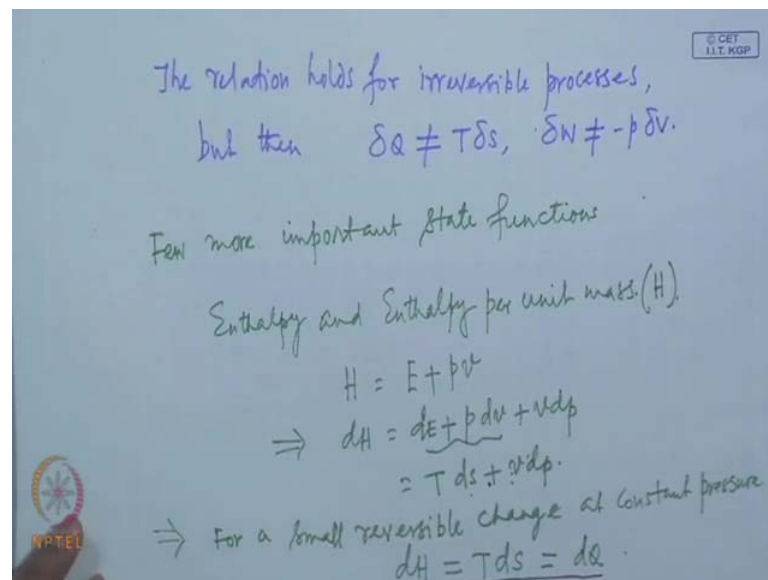 © CET
I.I.T. KGP
The relation holds for irreversible processes,
but then δQ ≠ TδS, δW ≠ -pδV.
Few more important state functions
Enthalpy and Enthalpy per unit mass.(H).
H = E + pv
⇒ dH = dE + pdv + vdp
= T ds + vdp.
⇒ For a small reversible change at constant pressure
dH = T ds = dQ.
NPTEL